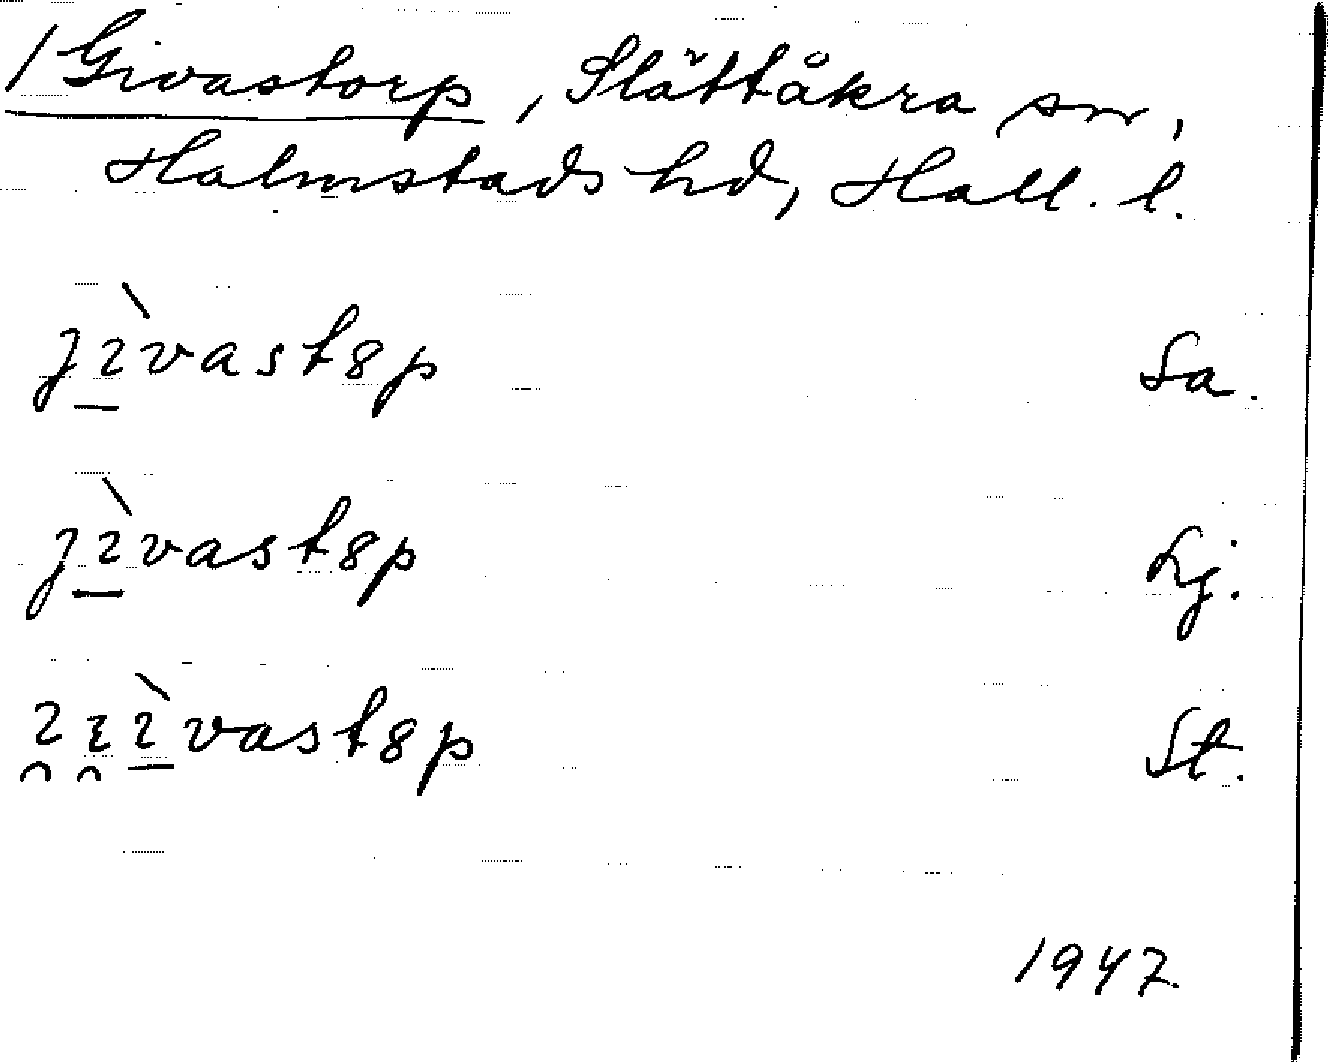 / Givastorp, Slättåkra sn,
Halmstads hd, Hall. l.
jı̱̀vastȣp Sa.
jı̱̀vastȣp Lj.
ı̯ı̯ı̱̀vastȣp St.
1947.